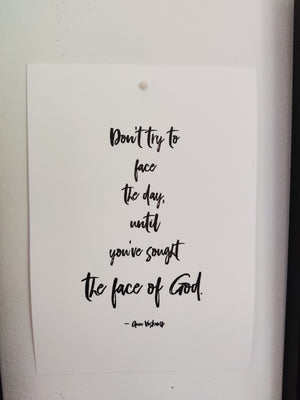 Don't try to
face
the day,
until
you've sought
the face of God.
— Ann Voskamp